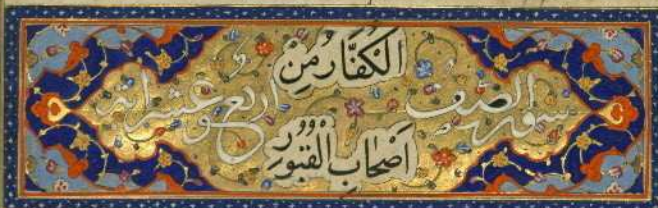 الكُفَّارُ مِنْ
سورة الصف اربع و عشر آية
اَصْحَابِ الْقُبُورِ